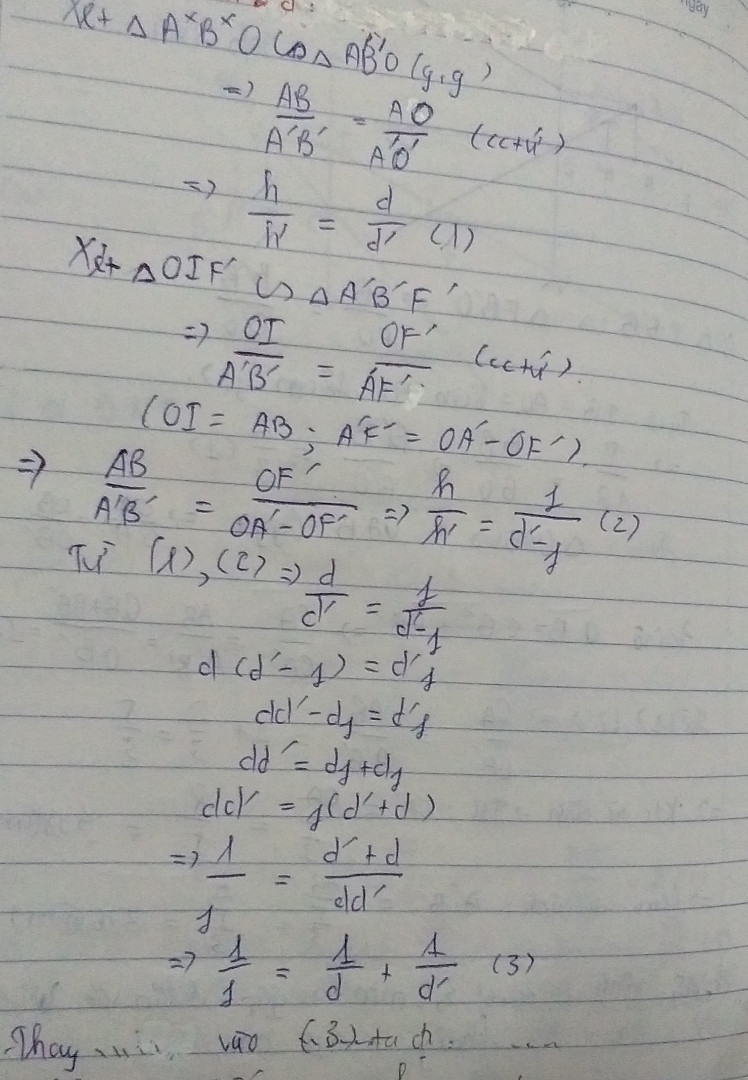 Xét Δ A'B'O ∽ Δ ABO (g.g)
=> AB/A'B' = AO/A'O (cctư)
=> h/h' = d/d' (1)
Xét Δ OIF' ∽ Δ A'B'F'
=> OI/A'B' = OF'/A'F' (cctư).
(OI = AB ; A'F' = OA' - OF').
=> AB/A'B' = OF'/OA' - OF' => h/h' = f/d' - f (2)
Từ (1), (2) => d/d' = f/d' - f
d (d' - f) = d'f
dd' - df = d'f
dd' = df + df
dd' = f(d' + d)
=> 1/f = d' + d/dd'
=> 1/f = 1/d + 1/d' (3)
Thay vào (3) ta